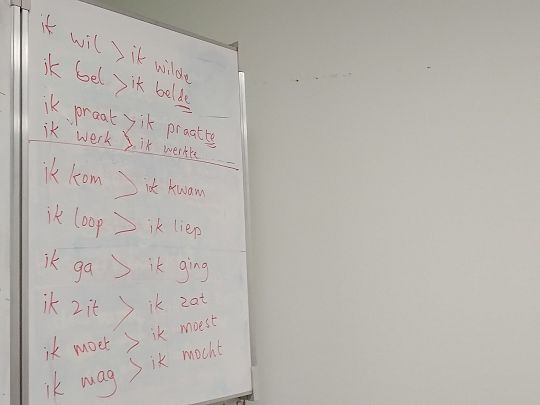 ik wil > ik wilde
ik bel > ik belde
ik praat > ik praatte
ik werk > ik werkte
ik kom > ik kwam
ik loop > ik liep
ik ga > ik ging
ik zit > ik zat
ik moet > ik moest
ik mag > ik mocht